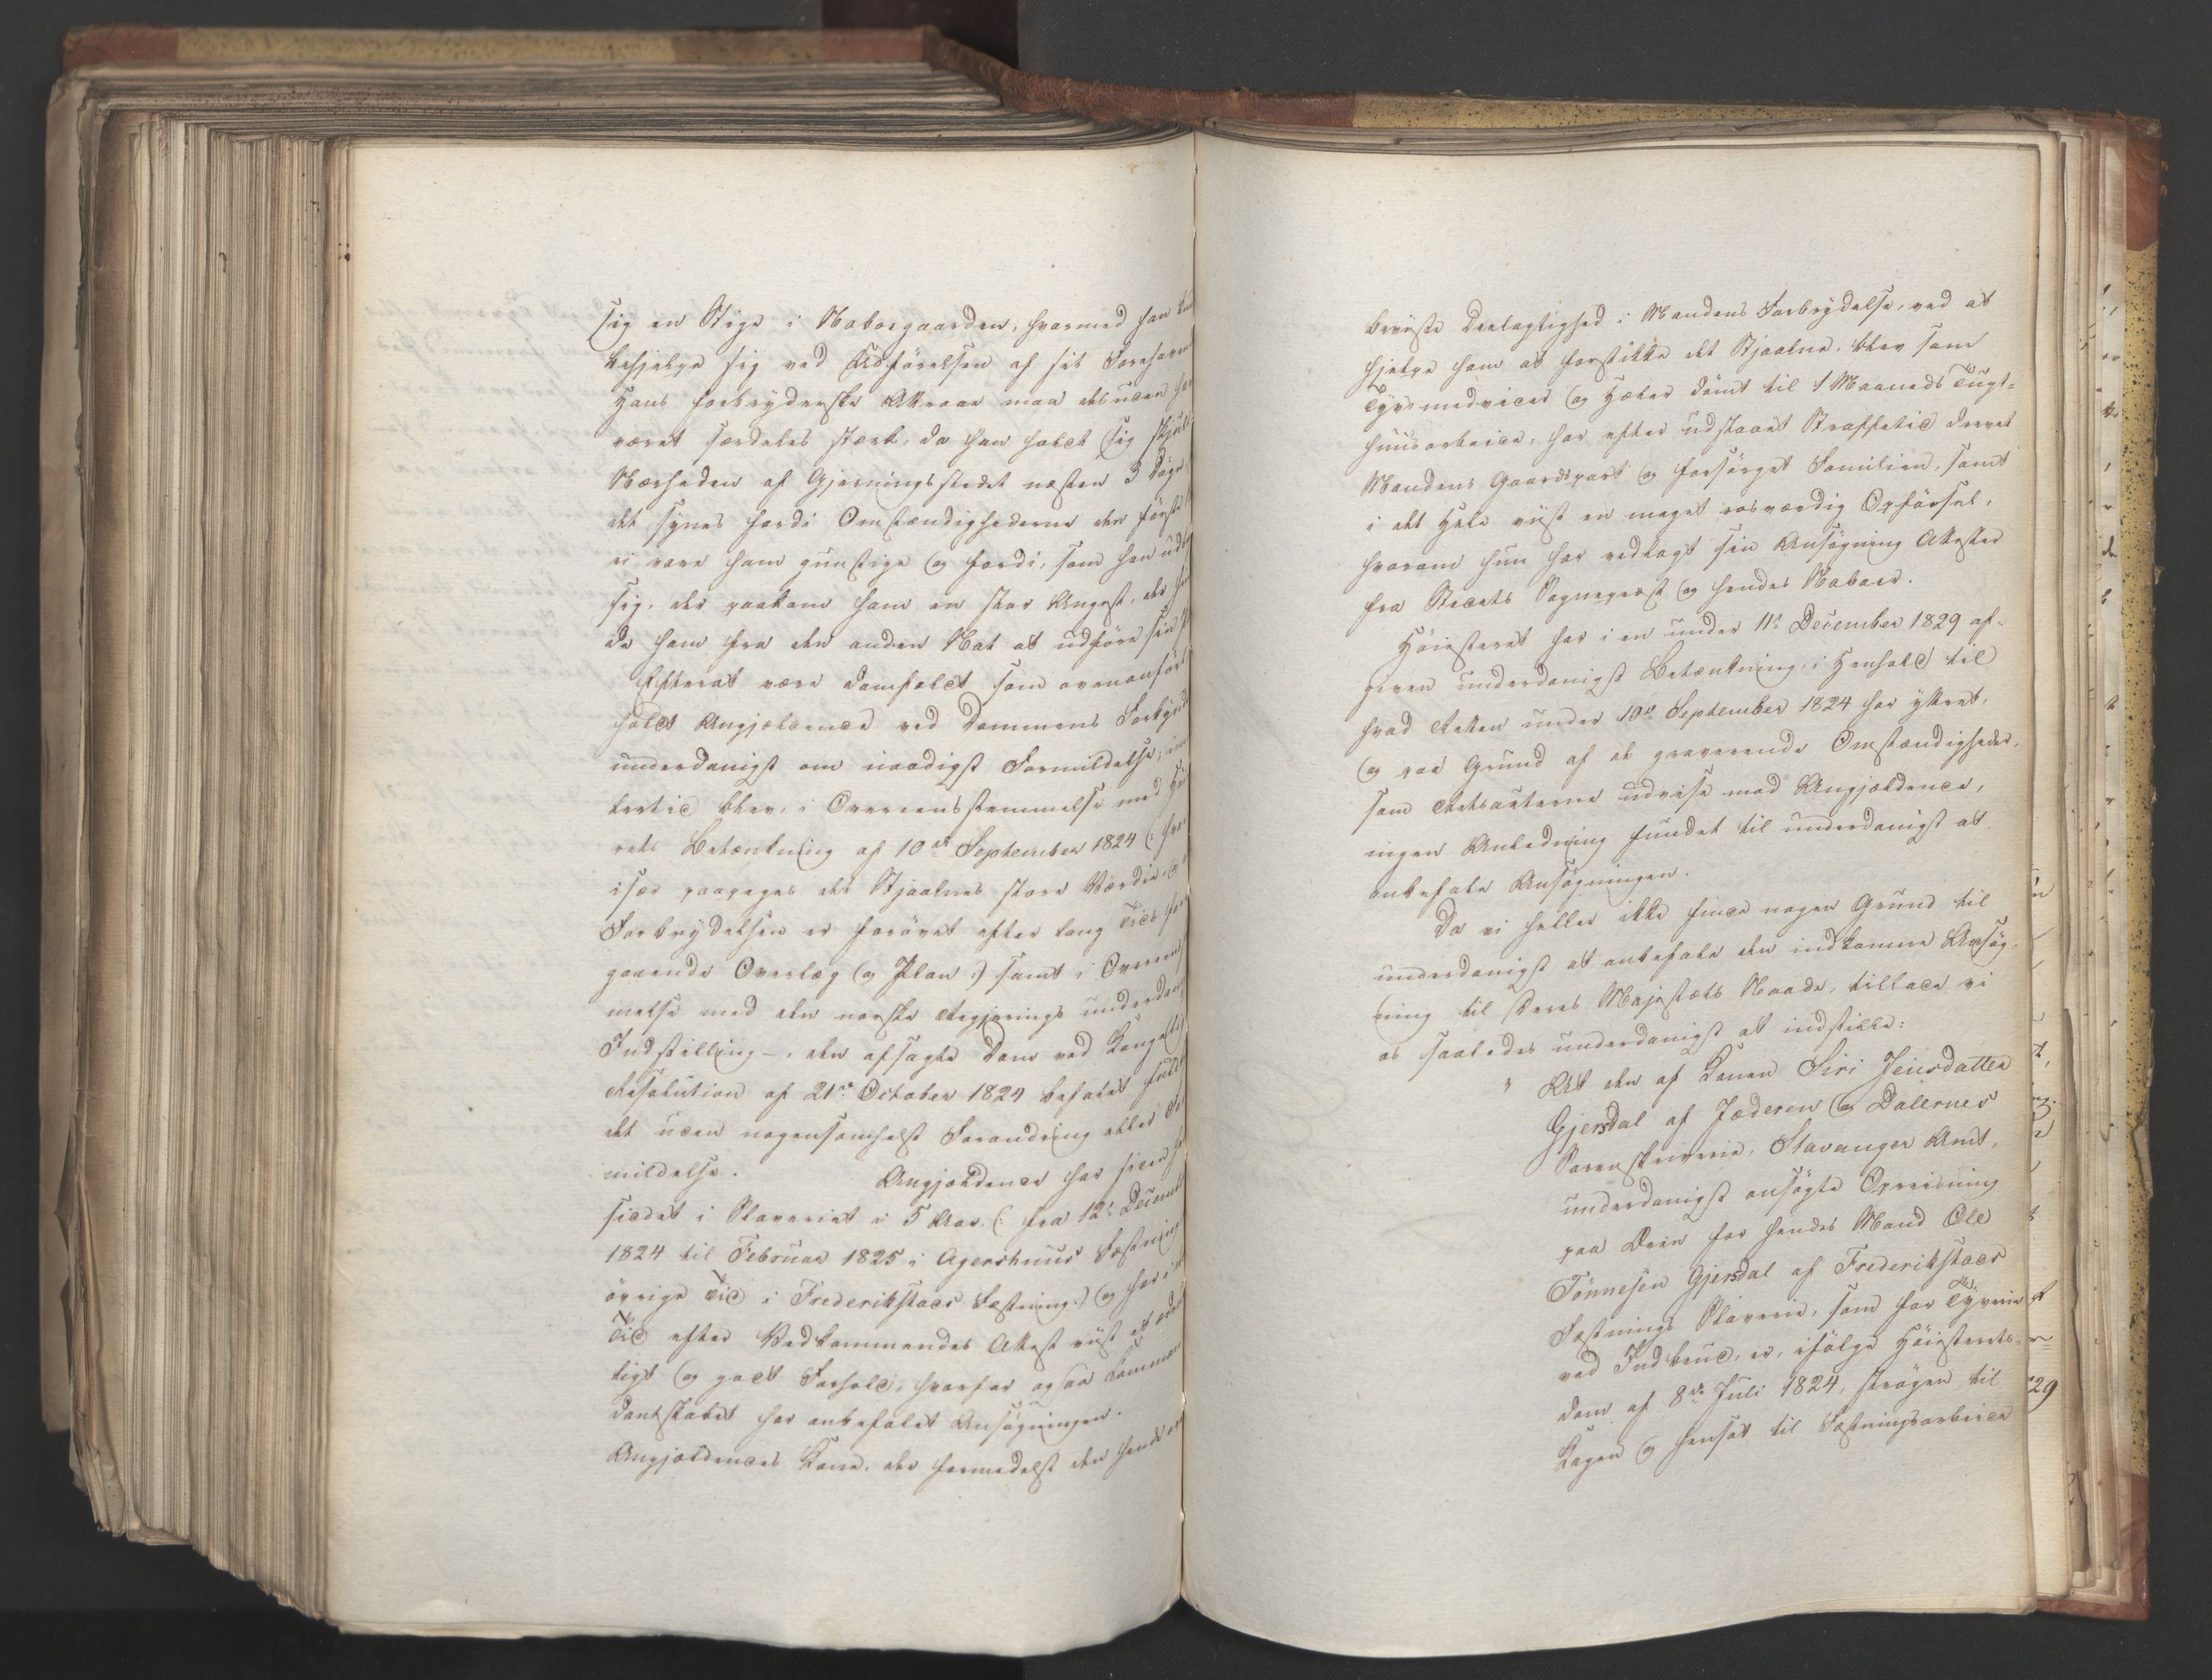 sig en Stige i Naboegaarden, hvormed han
behjelpe sig ved Udförelsen af sit Forehaven
Hans forbryderske Attraae maa desuden
været særdeles stærk, da han holdt sig skjult
Nærheden af Gjerningsstedet næsten 3 Döge
det synes fordi Omstændighederne den förste
ei vare ham gunstige og fordi, som han
sig, der paakom ham en stor Angest, der
de ham fra den anden Nat at udföre sin
Efterat være domfældt som ovenanfört
holdt Angjældende ved Dommens Forkynd
underdanigst om naadigst Formildelse,
lertid blev, i Overeensstemmelse med Höi
rets Betænkning af 10de September 1824 (:
især paapeges det Stjaalnes store Værdie, og
Forbrydelsen er forövet efter lang Tids for
gaaende Overlæg og Plan :) samt i Overeens
melse med den norske Regjerings underdan
Indstilling -, den afsagte Dom ved Kongelig
Resolution af 21de October 1824 befalet fuld
det uden nogensomhelst Forandring eller For
mildelse. Angjældende har siden
siddet i Slaveriet i 5 Aar (: fra 12te Decemb
1824 til Februar 1825 i Agershuus Fæstning
övrige Tid i Frederikstads Fæstning :) og har i
Tid efter Vedkommendes Attest viist et
ligt og godt Forhold, hvorfor ogsaa Komman
dantskabet har anbefalet Ansögningen.
Angjældendes Kone, der formedelst den hende
beviiste Deelagtighed i Mandens Forbrydelse, ved at
hjelpe ham at forstikke det Stjaalne, blev som
Tyvsmedvider og Hæler dömt til 1 Maaneds Tugt-
huusarbeide, har efter udstaaet Straffetid drevet
Mandens Gaardspart og forsörget Familien, samt
i det Hele viist en meget rosværdig Opförsel,
hvorom hun har vedlagt sin Ansögning Attester
fra Stedets Sognepræst og hendes Naboer.
Höiesteret har i en under 11te December 1829 af-
given underdanigst Betænkning, i Henhold til
hvad Retten under 10de September 1824 har yttret,
og paa Grund af de graverende Omstændigheder,
som Retsacterne udvise mod Angjældende,
ingen Anledning fundet til underdanigst at
anbefale Ansögningen.
Da vi heller ikke finde nogen Grund til
underdanigst at anbefale den indkomne Ansög-
ning til Deres Majestæts Naade, tillade vi
os saaledes underdanigst at indstille:
" At den af Konen Siri Jensdatter
Gjersdal af Jæderen og Dalernes
Sorenskriverie, Stavanger Amt,
underdanigst ansögte Opreisning
paa Æren for hendes Mand Ole
Tönnesen Gjersdal af Frederikstads
Fæstnings Slaverie, som for Tyverie
ved Indbrud, er, ifölge Höiesterets-
dom af 8de Juli 1824, strögen til
Kagen og hensat til Fæstningsarbeide
29